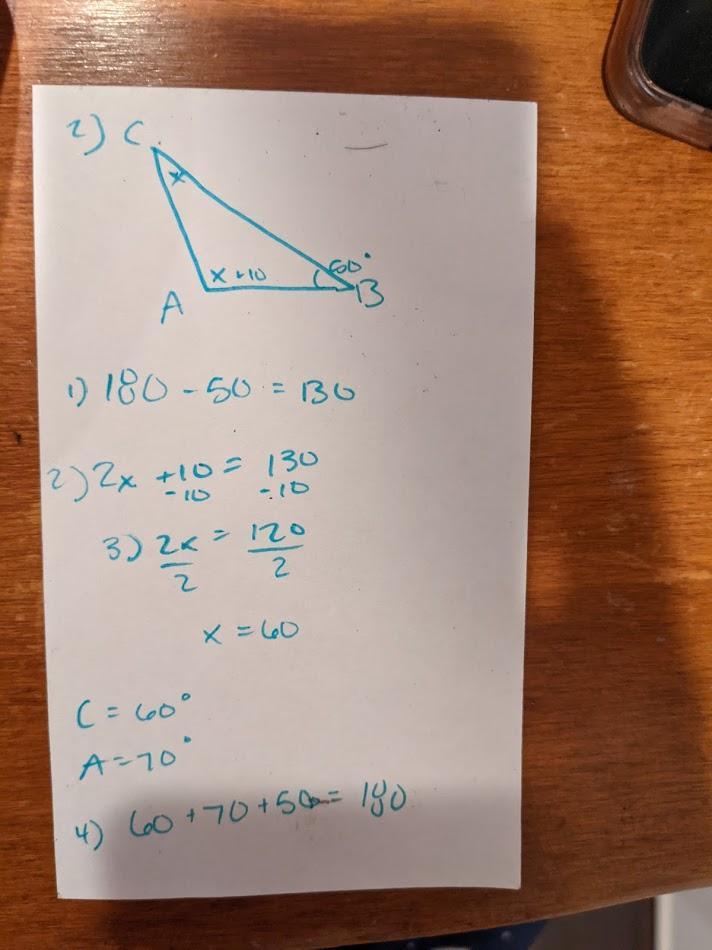 2) C
x
x+10 50°
A B
1) 180 - 50 = 130
2) 2x +10 = 130
-10 -10
3) 2x = 120
2 2
x = 60
C = 60°
A = 70°
4) 60 + 70 + 50 = 180